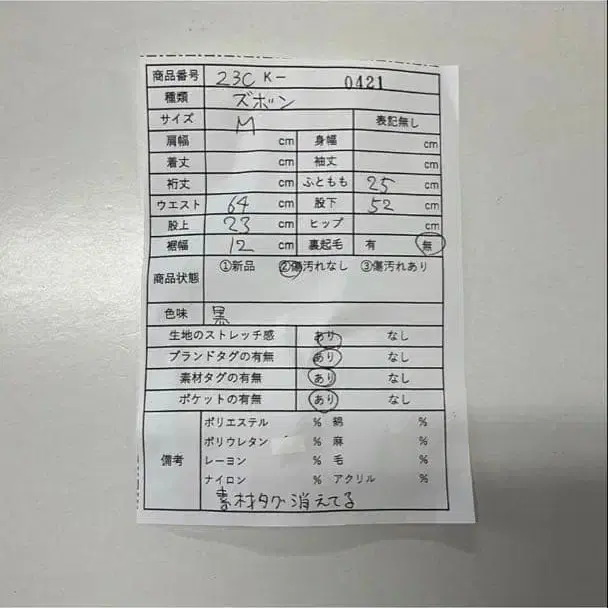 商品番号 23C K- 0421
種類 ズボン
サイズ M 表記無し
肩幅 cm 身幅 cm
着丈 cm 袖丈 cm
裄丈 cm ふともも 25 cm
ウエスト 64 cm 股下 52 cm
股上 23 cm ヒップ cm
裾幅 12 cm 裏起毛 有 無
商品状態 ①新品 ②傷汚れなし ③傷汚れあり
色味 黒
生地のストレッチ感 あり なし
ブランドタグの有無 あり なし
素材タグの有無 あり なし
ポケットの有無 あり なし
備考
ポリエステル % 綿 %
ポリウレタン % 麻 %
レーヨン % 毛 %
ナイロン % アクリル %
素材タグ消えてる